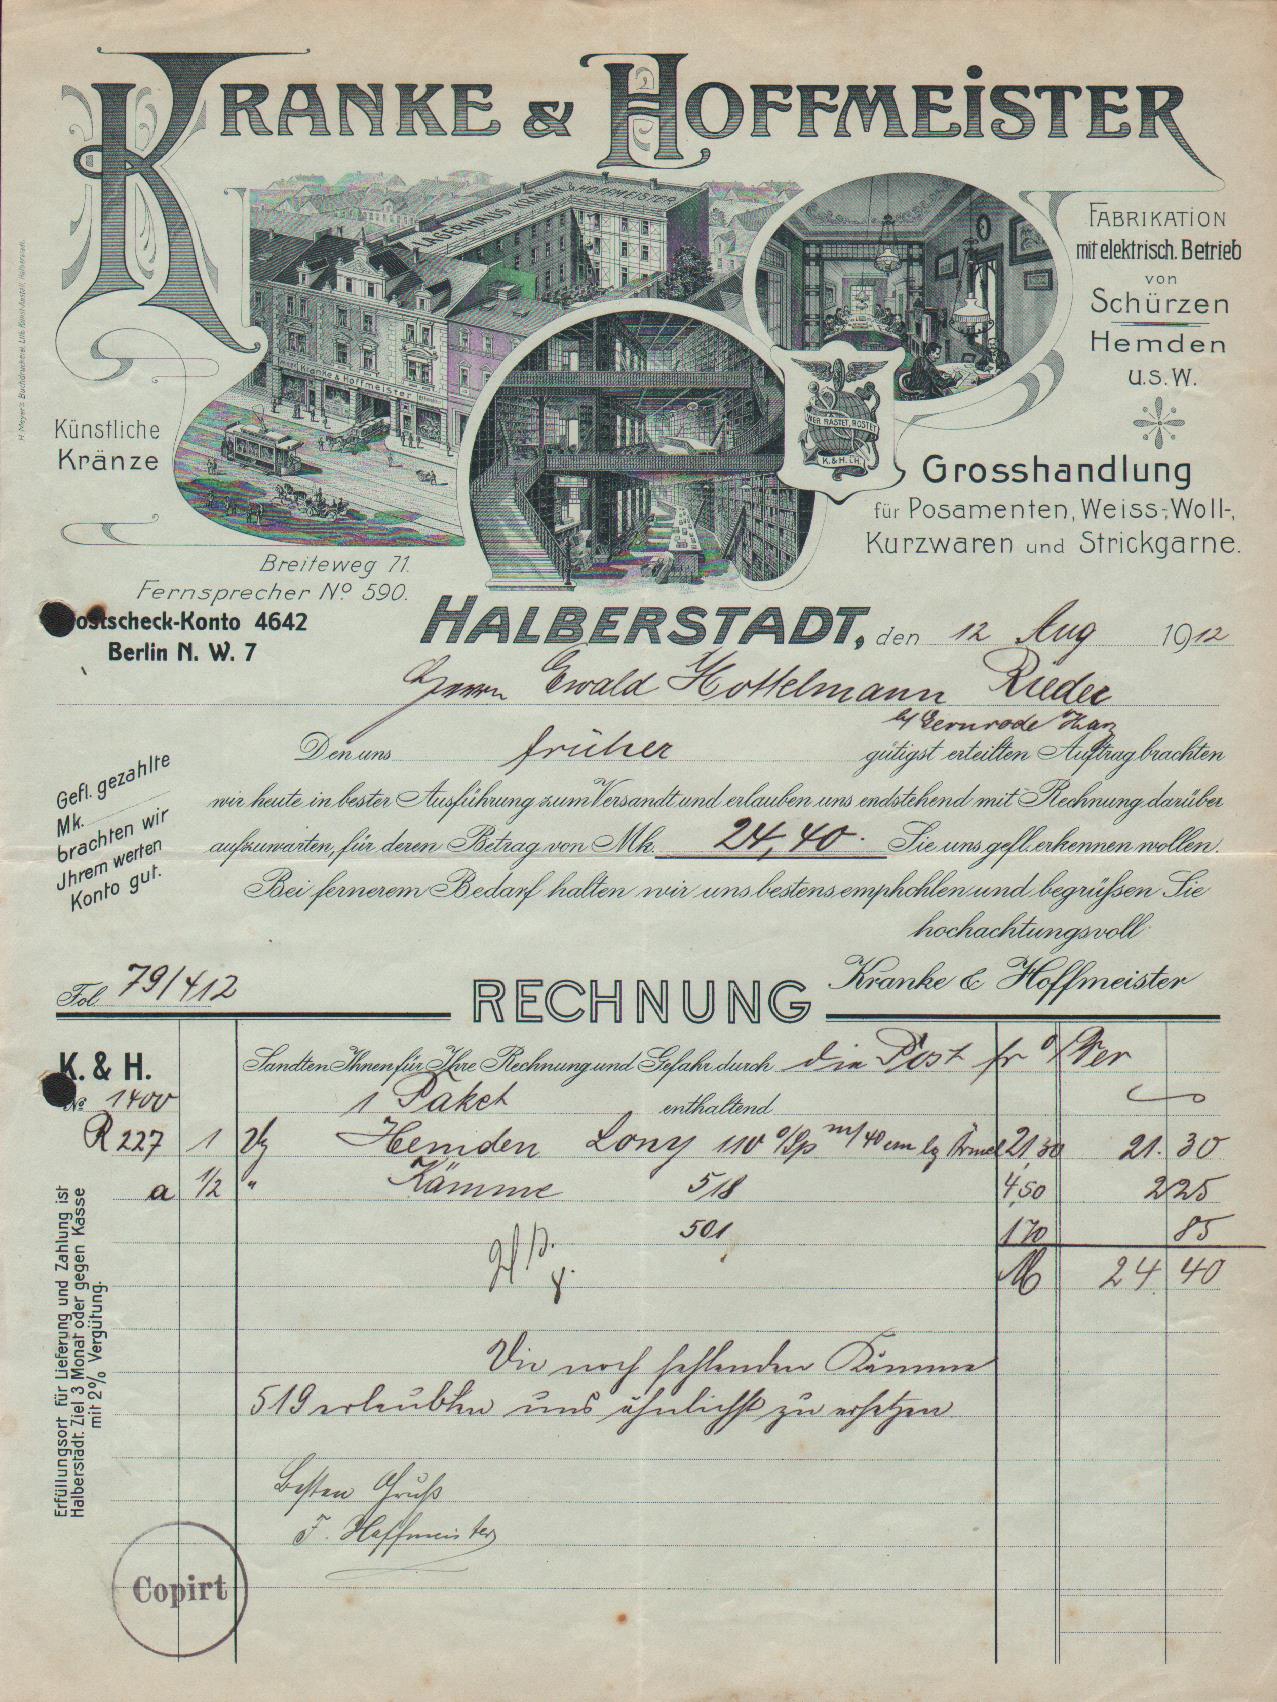 KRANKE & HOFFMEISTER
LAGERHAUS KRANKE & HOFFMEISTER
Kranke & Hoffmeister
FABRIKATION
mit elektrisch. Betrieb
von
Schürzen
Hemden
u.s.W.
WER RASTET, ROSTET
K. & H. i/H.
Künstliche
Kränze
Grosshandlung
für Posamenten, Weiss-, Woll-,
Kurzwaren und Strickgarne.
H. Meyer's Buchdruckerei, Lith. Kunst-Anstalt, Halberstadt.
Breiteweg 71.
Fernsprecher No 590.
Postscheck-Konto 4642
Berlin N. W. 7
HALBERSTADT, den 12 Aug 1912
Herrn Ewald Hottelmann Rieder
b/ Gernrode Harz
Den uns früher gütigst erteilten Auftrag brachten
wir heute in bester Ausführung zum Versandt und erlauben uns endstehend mit Rechnung darüber
aufzuwarten, für deren Betrag von Mk. 24,40. Sie uns gefl. erkennen wollen.
Bei fernerem Bedarf halten wir uns bestens empfohlen und begrüßen Sie
hochachtungsvoll
Kranke & Hoffmeister
Gefl. gezahlte
Mk.
brachten wir
Jhrem werten
Konto gut.
Fol. 79/412
RECHNUNG
K. & H.
No 1400
Sandten Ihnen für Ihre Rechnung und Gefahr durch die Post
1 Paket enthaltend
R 227 1 Hemden Lony 110 m/ 40 cm lg Ärmel 21,30 21. 30
a 1/2 " Kämme 518 4,50 2 25
501 1 70 85
M 24 40
Die noch fehlenden Kämme
519 erlaubten uns ähnlichst zu ersetzen
Besten Gruß
F. Hoffmeister
Erfüllungsort für Lieferung und Zahlung ist
Halberstadt. Ziel 3 Monat oder gegen Kasse
mit 2% Vergütung.
Copirt